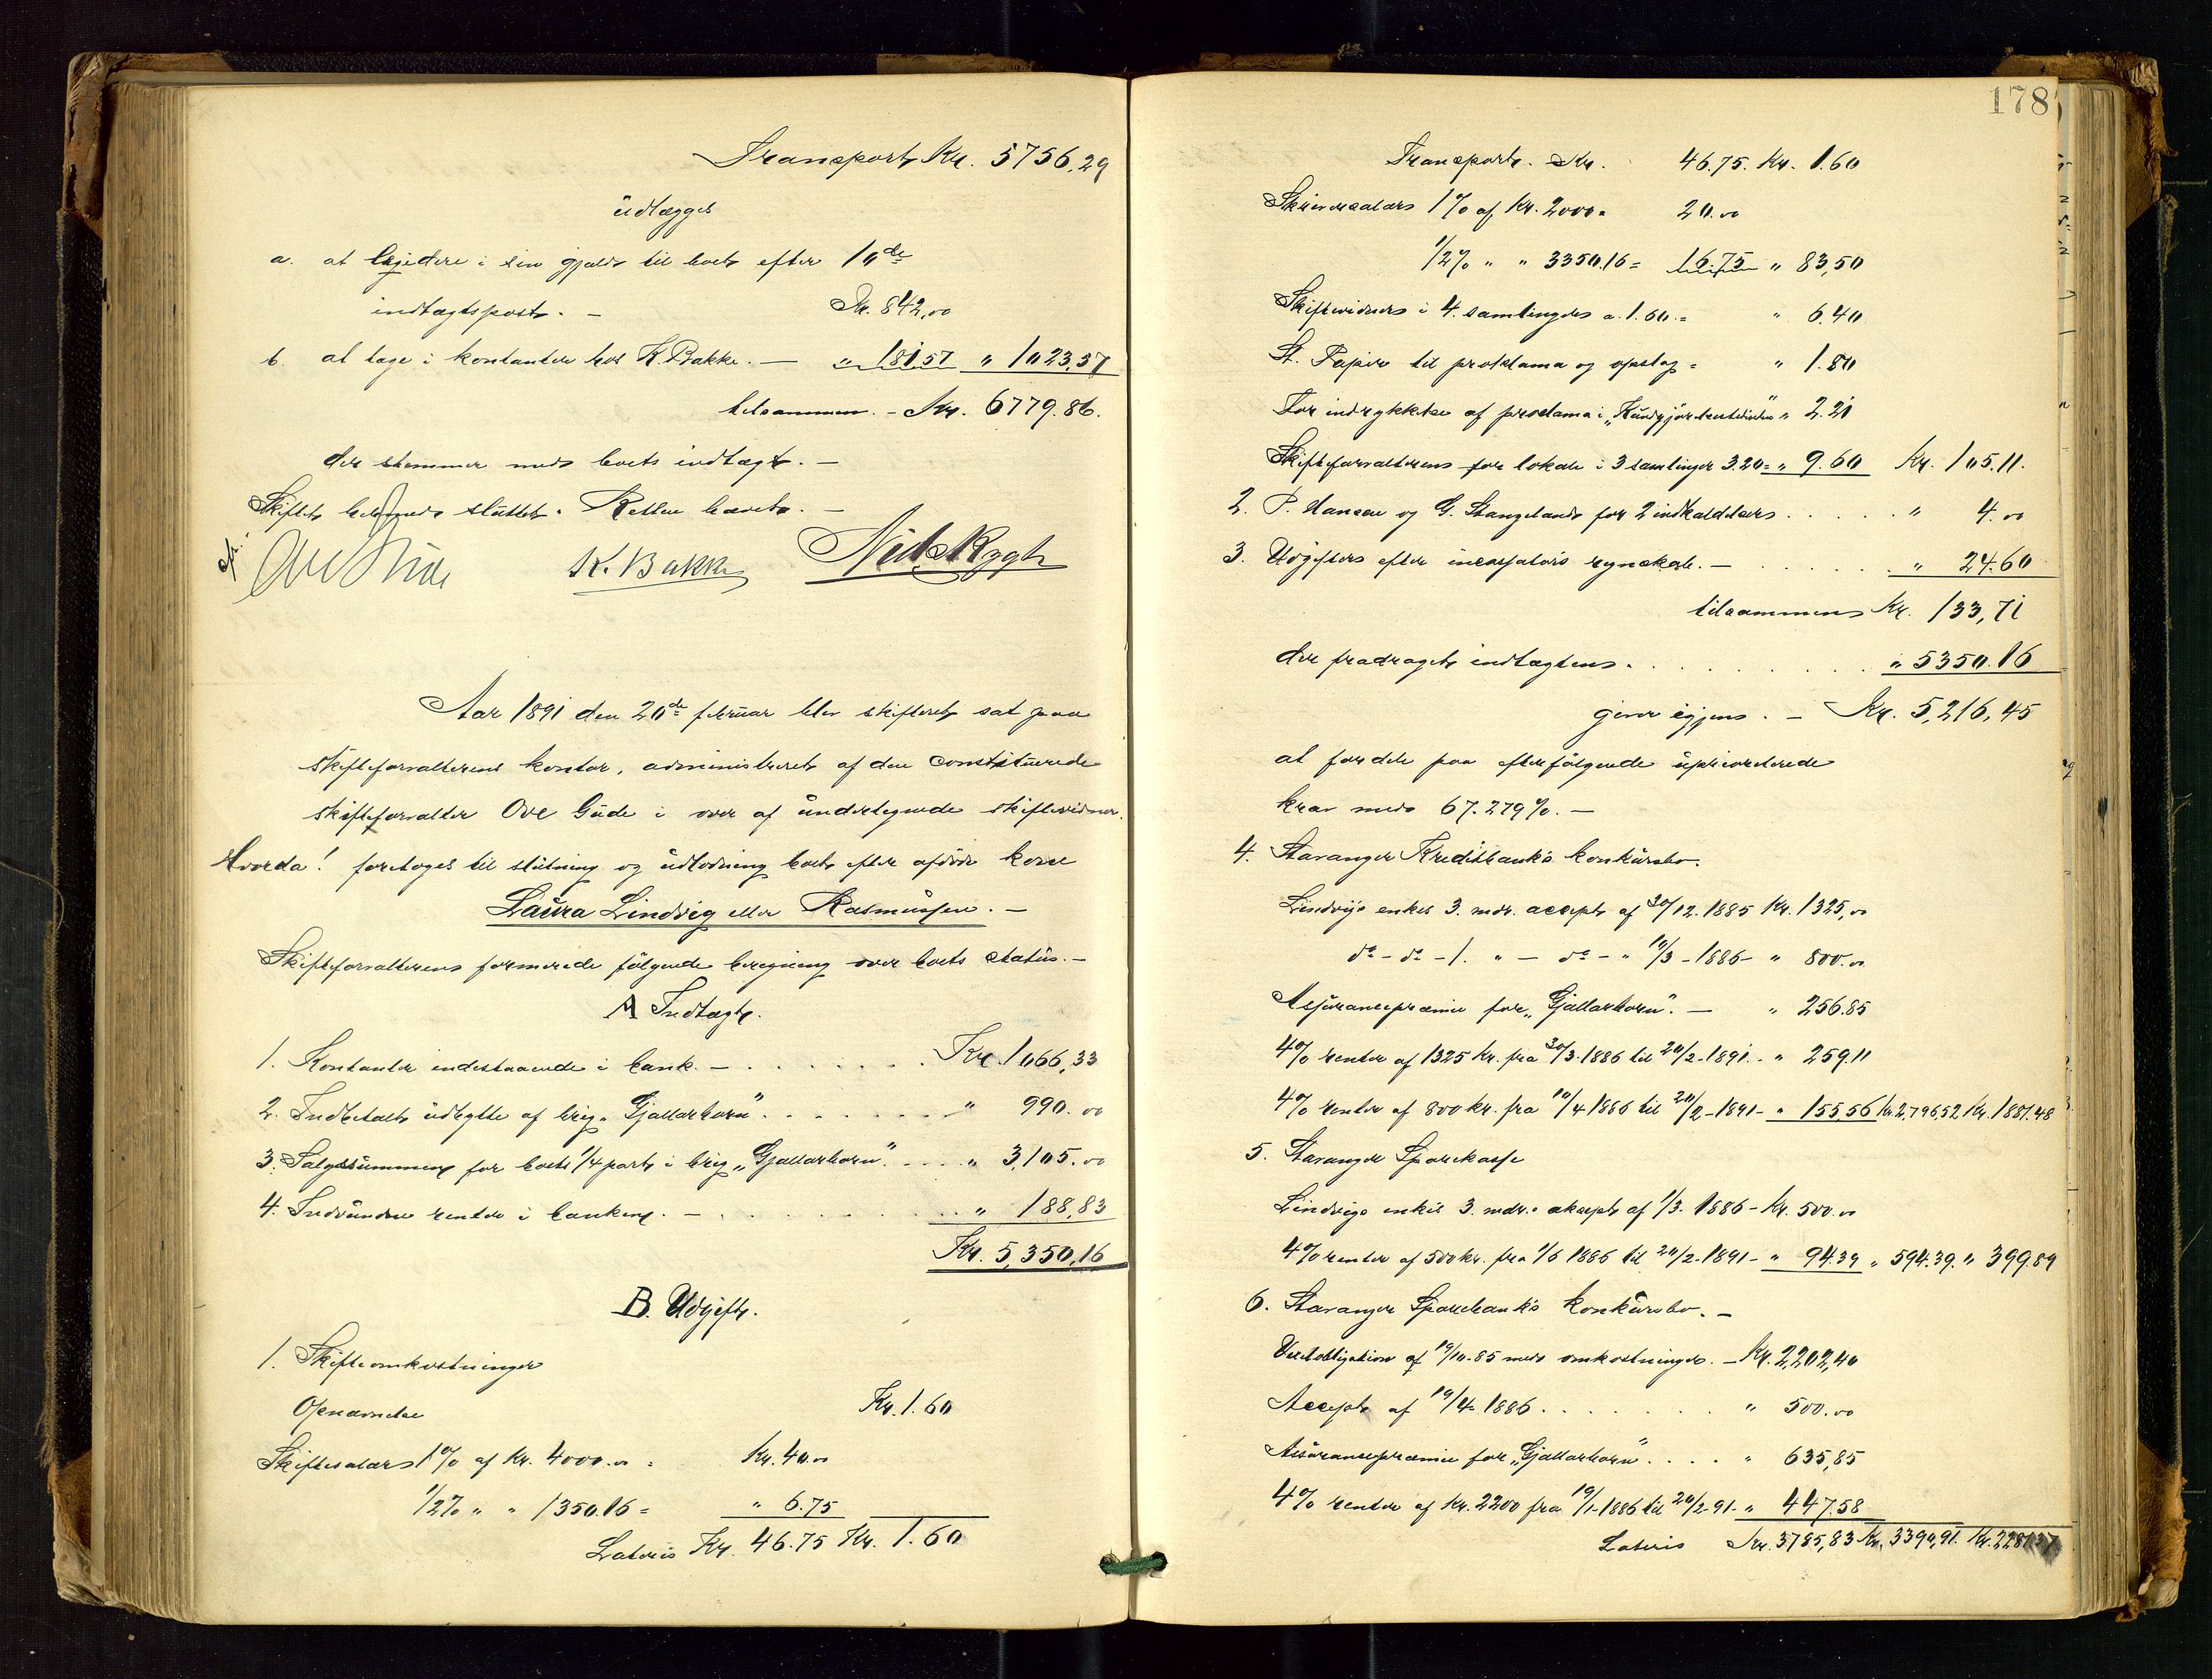 Transport Kr. 5756.29
udlægges
a. at liqvidere i sin gjæld til boet efter 10de
indtægtspost. — Kr. 842,00
b. at tage i kontanter hos K. Bakke. — " 181,57 " 1023,57
tilsammen. — Kr. 6779.86.
der stemmer med boets indtægt. —
Skiftet hermed sluttet. Retten hævet. —
K. Bakke Niels Rygh
Aar 1891 den 20de februar blev skifteret sat paa
skifteforvalterens kontor, administreret af den constituerede
skifteforvalter Ove Gude i over af undertegnede skiftevidner.
Hvorda! foretoges til slutning og udlodning boet efter afdøde kone
Laura Lindvig eller Rasmussen. —
Skifteforvalteren formerede følgende beregning over boets status. —
A Indtægt.
1. Kontanter indestaaende i bank. — . . . . . . Kr. 1066,33
2. Indbetalt udbytte af brig. "Gjallarhorn". . . . . . " 990.00
3. Salgssummen for boets 1/4 part i brig „Gjallarhorn". . . . . " 3,105.00
4. Indvundne renter i banken. — . . . . . . " 188,83
Kr. 5,350,16
B. Udgift.
1. Skifteomkostninger
Opnævnelse Kr. 1.60
Skiftesalær 1% af Kr. 4000.00 = Kr. 40.00
1/2% " " 1350.16 = " 6.75
Lateris Kr. 46.75 Kr. 1.60
178
Transport. Kr. 46.75. Kr. 1.60
Skriversalær 1% af Kr. 2000 = 20.00
1/2% " " 3350.16 = 16.75 " 83,50
Skiftevidner i 4. samlinger a. 1.60. = " 6.40
St. Papir til proklama og opslag = " 1.80
For indrykkelse af proclama i „Kundgjørelsestidende" " 2.21
Skifteforvalteren for lokale i 3 samlinger 3.20 = " 9.60 Kr. 105.11.
2. P. Hansen og G. Stangeland for 2 indkaldelser . . . . . " 4.00
3. Udgifter efter incassators regnskab. — . . . . . " 24.60
tilsammen Kr. 133,71
der fradraget indtægten. . . . . . . " 5350.16
giver igjen. — Kr. 5,216,45
at fordele paa efterfølgende uprioriterede
krav med 67.279%. —
4. Stavanger Kreditbank's konkursbo.
Lindvigs enkes 3. mdr. accept af 30/12. 1885 Kr. 1325,00
do - do - 1. " — do - " 10/3 - 1886 - " 800.00
Assurancepræmie for „Gjallarhorn". — " 256.85
4% renter af 1325 Kr. fra 30/3-1886 til 20/2-1891. - " 259.11
4% renter af 800 kr. fra 10/4 1886 til 20/2-1891 - " 155,56 Kr. 2,796,52 Kr. 1881.48
5. Stavanger Sparekasse
Lindvigs enkes 3. mdr. akcept af 1/3. 1886 - Kr. 500.00
4% renter af 500 kr. fra 1/6 1886 til 20/2-1891 - " 94.39 " 594.39. " 399.89
6. Stavanger Sparebank's konkursbo. —
Vexelobligation af 19/10-85 med omkostninger. — Kr. 2,202,40
Accept af 19/4-1886. . . . . . . " 500.00
Assurancepræmie for „Gjallarhorn" . . . . " 635,85
4% renter af Kr. 2200 fra 19/1-1886 til 20/2-91. " 447.58
Lateris Kr. 3785,83 Kr. 3390,91. Kr. 2281.37